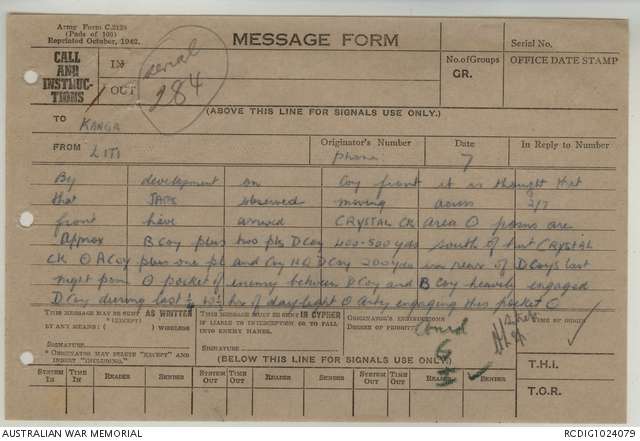 Army Form C.2128
(Pads of 100)
Reprinted October, 1942.
MESSAGE FORM
Serial No.
CALL AND INSTRUCTIONS
IN
OUT
serial
284
No. of Groups
GR.
OFFICE DATE STAMP
(ABOVE THIS LINE FOR SIGNALS USE ONLY.)
TO KANGA
FROM LITI
Originator's Number
Phone
Date
7
In Reply to Number
By development on Coy front it is thought that
that JAPS observed moving across 2/7
front have arrived CRYSTAL CK area O posns are
Approx B Coy plus two pls D Coy 400-500 yds south of hut CRYSTAL
CK O A Coy plus one pl and Coy HQ D Coy 200 yds rear of D Coys last
night posn O pocket of enemy between D Coy and B Coy heavily engaged
D Coy during last hr of daylight O Arty engaging this pocket O
THIS MESSAGE MAY BE SENT AS WRITTEN
(EXCEPT)
BY ANY MEANS ( ) WIRELESS
SIGNATURE
* ORIGINATOR MAY DELETE "EXCEPT" AND
INSERT "INCLUDED"
THIS MESSAGE MUST BE SENT IN CYPHER
IF LIABLE TO INTERCEPTION OR TO FALL
INTO ENEMY HANDS.
SIGNATURE
ORIGINATOR'S INSTRUCTIONS
DEGREE OF PRIORITY
TIME OF ORIGIN
(BELOW THIS LINE FOR SIGNALS USE ONLY.)
T.H.I.
T.O.R.
SYSTEM IN
TIME IN
READER
SENDER
SYSTEM OUT
TIME OUT
READER
SENDER
SYSTEM OUT
TIME OUT
READER
SENDER
AUSTRALIAN WAR MEMORIAL
RCDIG1024079